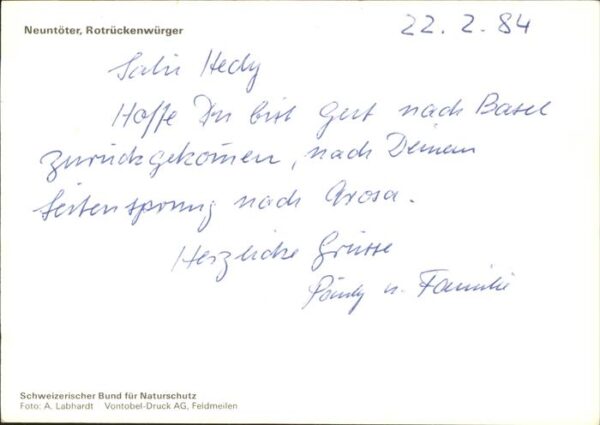 Neuntöter, Rotrückenwürger
22. 2. 84
Salü Hedy
Hoffe Du bist gut nach Basel
zurückgekom̄en, nach Deinem
Seitensprung nach Arosa.
Herzliche Grüsse
u. Familie
Schweizerischer Bund für Naturschutz
Foto: A. Labhardt Vontobel-Druck AG, Feldmeilen